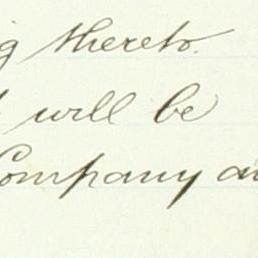 g thereto.
will be
Company